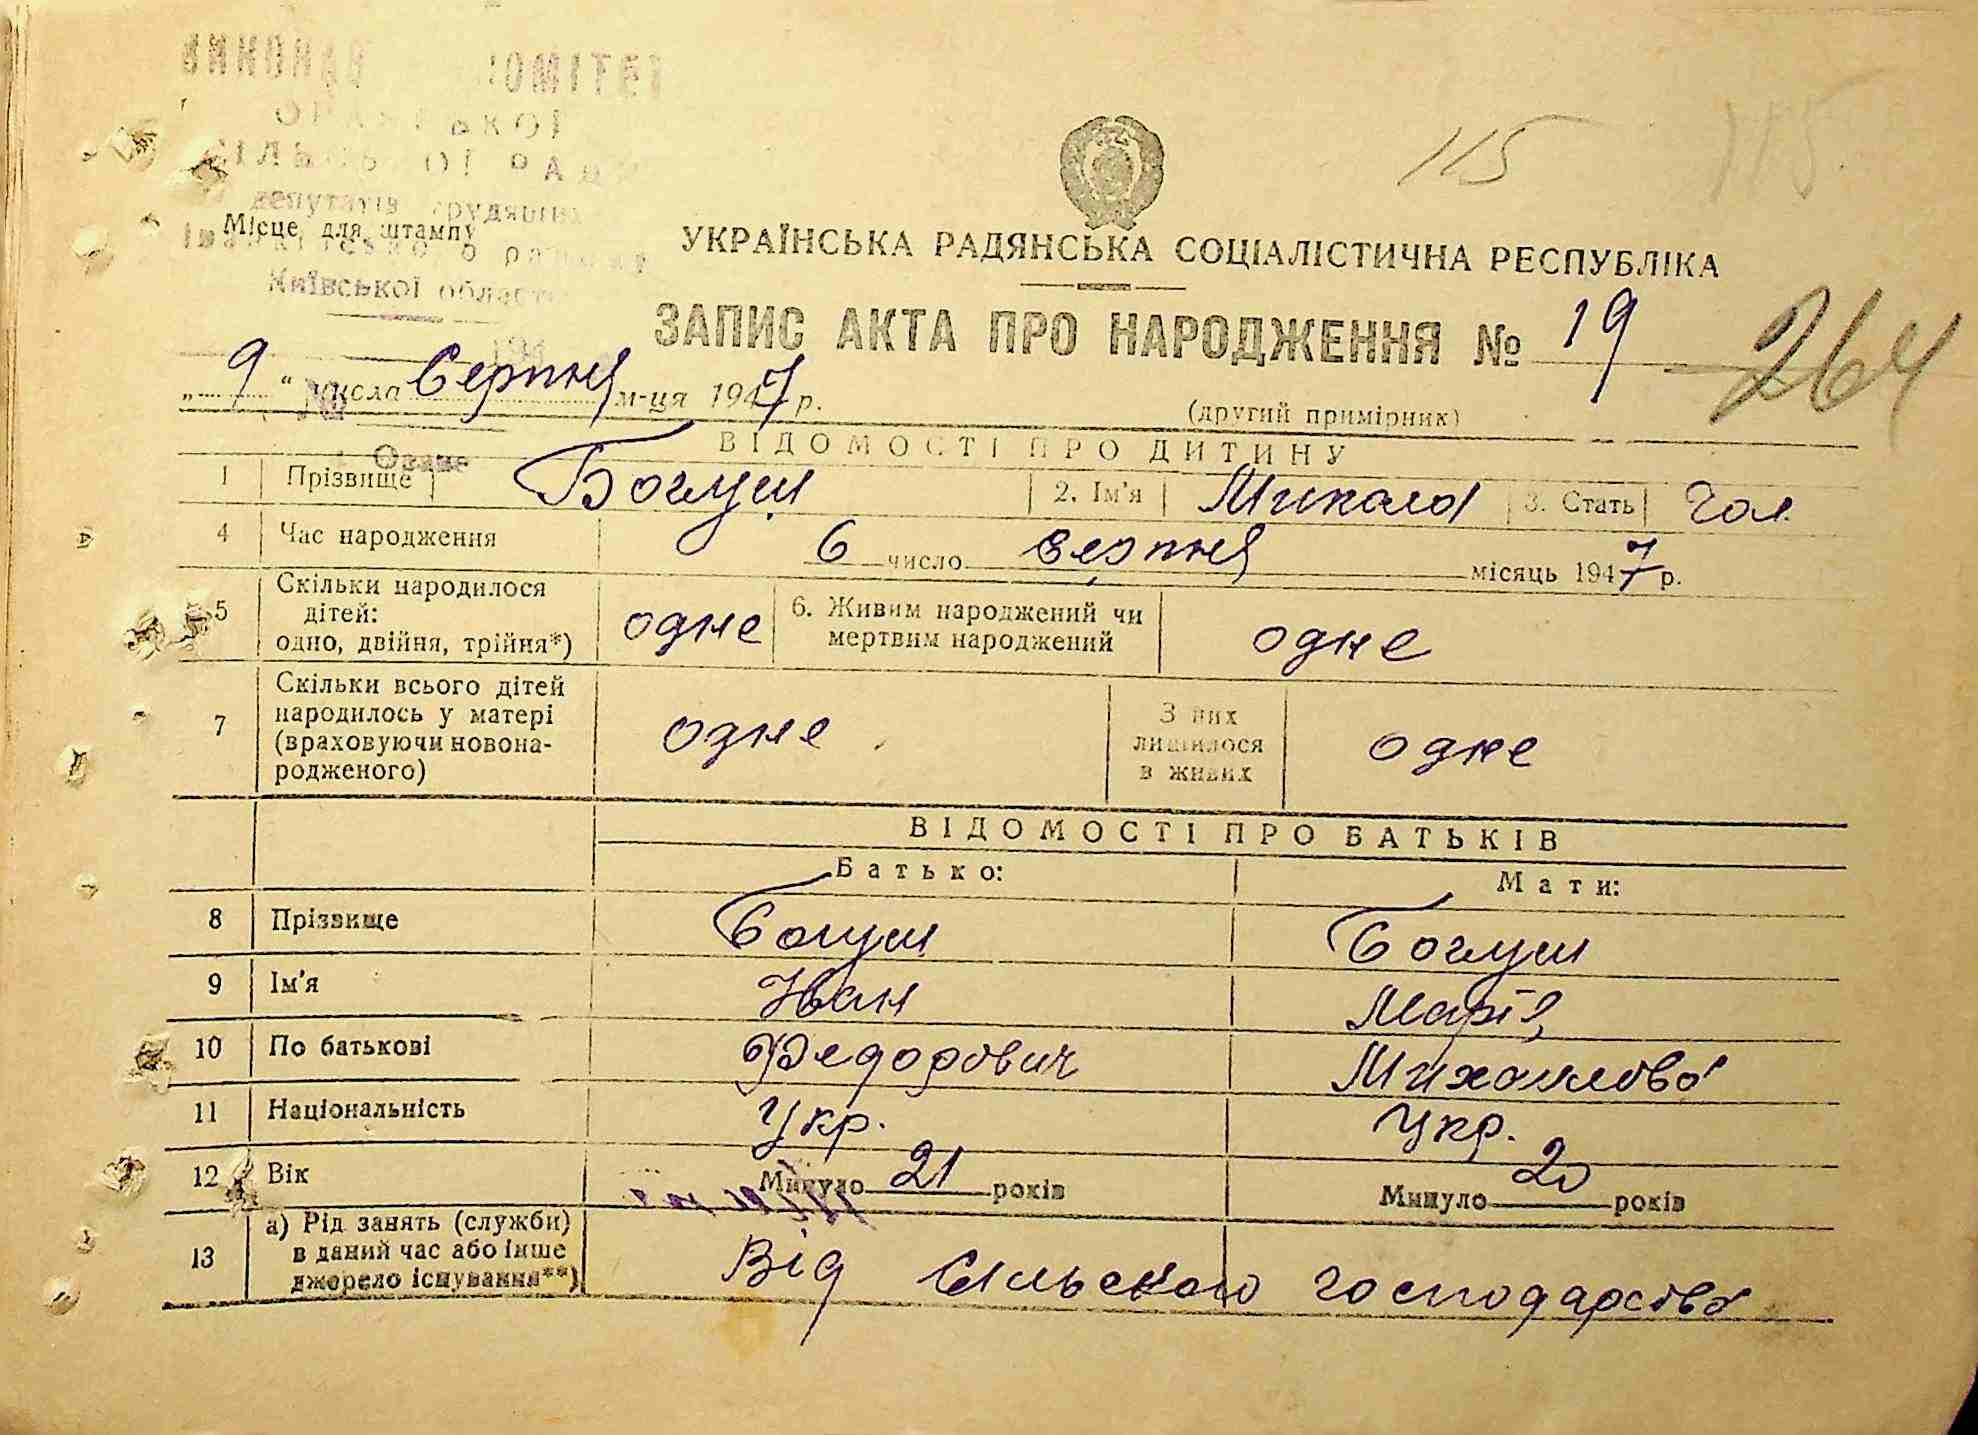 КОМІТЕТ
депутатів трудящих
Місце для штампу
Київської області
115 115
УКРАЇНСЬКА РАДЯНСЬКА СОЦІАЛІСТИЧНА РЕСПУБЛІКА
ЗАПИС АКТА ПРО НАРОДЖЕННЯ № 19 264
„ 9 “ числа Серпня м-ця 1947 р.
№
(другий примірник)
ВІДОМОСТІ ПРО ДИТИНУ
1 Прізвище Богуш 2. Ім'я Микола 3. Стать чол.
4 Час народження 6 число серпня місяць 1947 р.
5 Скільки народилося
дітей:
одно, двійня, трійня*) одне 6. Живим народжений чи
мертвим народжений одне
7 Скільки всього дітей
народилось у матері
(враховуючи новона-
родженого) одне З них
лишилося
в живих одне
ВІДОМОСТІ ПРО БАТЬКІВ
Батько: Мати:
8 Прізвище Богуш Богуш
9 Ім'я Іван Марія
10 По батькові Федорович Михайлова
11 Національність Укр. Укр.
12 Вік Минуло 21 років Минуло 20 років
13 а) Рід занять (служби)
в даний час або інше
джерело існування**) Від сільского господарства